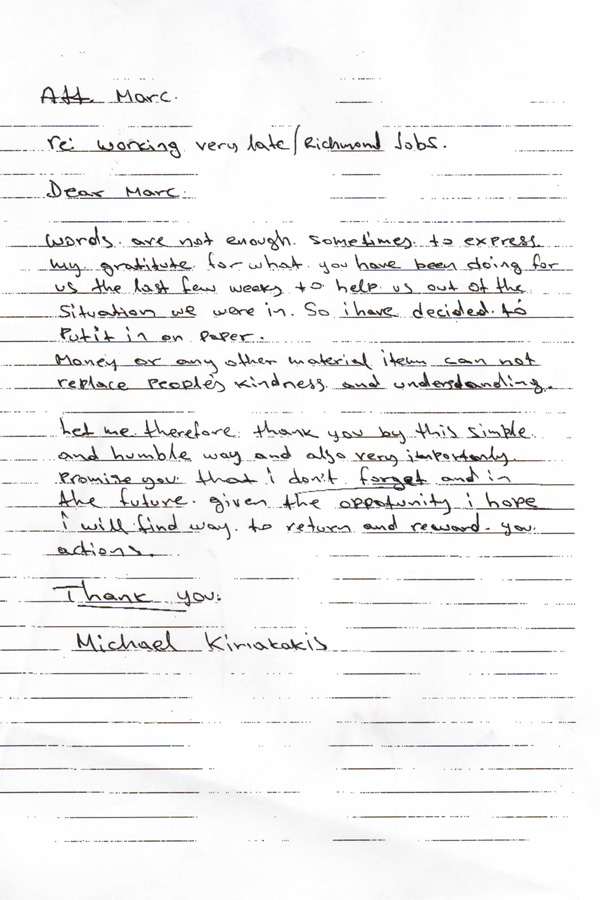 Att. Marc.
re: working very late/Richmond Jobs.
Dear Marc.
words are not enough sometimes to express
my gratitute for what you have been doing for
us the last few weeks to help us out of the
situation we were in. So i have decided to
Put it in on Paper.
Money or any other material item can not
replace People's kindness and understanding.
Let me therefore thank you by this simple
and humble way and also very importanly
Promise you that i don't forget and in
the future given the oppotunity i hope
i will find way to return and reward you
actions.
Thank you.
Michael Kiriakakis